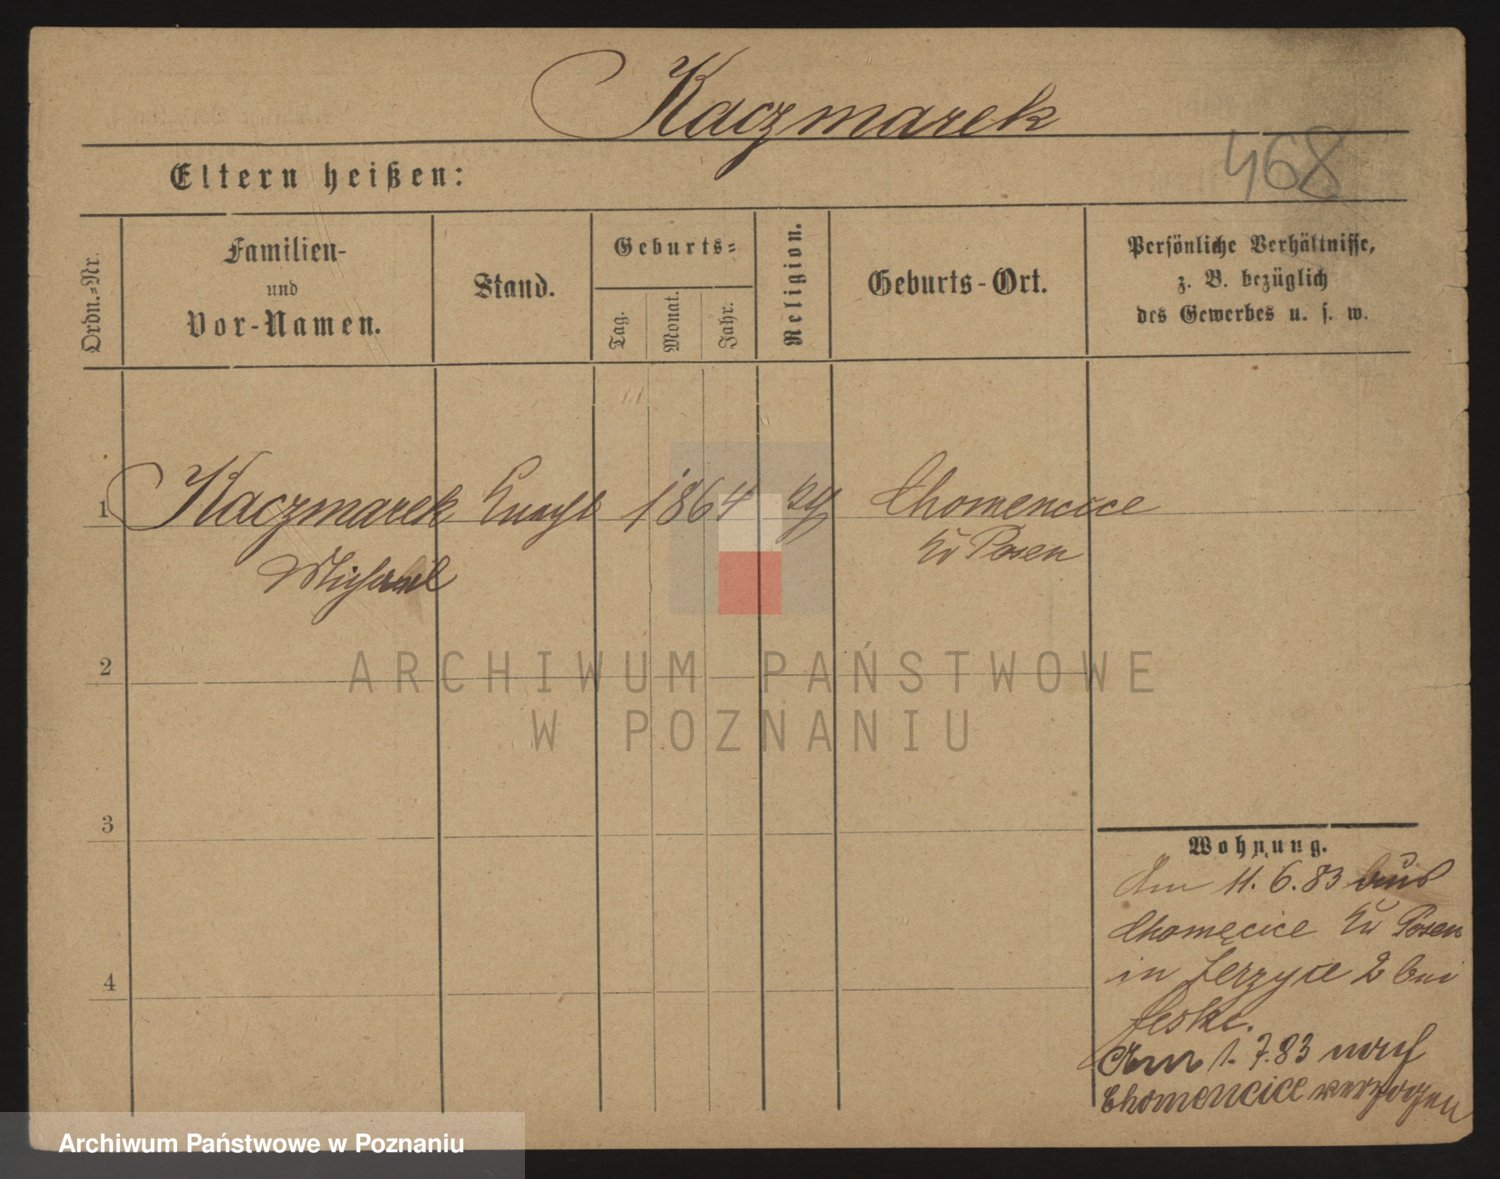 Kaczmarek
468
Eltern heißen:
Ordn.-Nr.
Familien-
und
Vor-Namen.
Stand.
Geburts-
Tag.
Monat.
Jahr.
Religion.
Geburts-Ort.
Persönliche Verhältnisse,
z. B. bezüglich
des Gewerbes u. s. w.
1
Kaczmarek Knecht 1864 Chomencice
Michael
Kr Posen
2
3
4
Wohnung.
Am 11. 6. 83 aus
Chomęcice Kr Posen
in Jerzyce 2 bei
Jeske.
Am 1. 7. 83 nach
Chomencice verzogen
ARCHIWUM PAŃSTWOWE
W POZNANIU
Archiwum Państwowe w Poznaniu